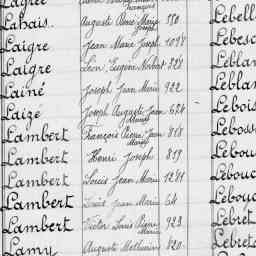 Labais. Auguste René Marie Joseph 550. Lebell
Laigre Jean Marie Joseph 1098 Lebesc
Laigre Léon, Eugène Norbert 328 Leblan
Lainé Joseph Jean Marie 922 Leblan
Laizé Joseph Auguste Jean Marie 624 Lebois
Lambert François Pierre Jean Marie 818 Leboss
Lambert Henri Joseph 819 Lebou
Lambert Louis Jean Marie 1241 Lebouc
Lambert Louis Jean Marie 64 Lebouc
Lambert Victor Louis Pierre Marie 923 Lebret
Lamy Auguste Mathurin 820 Lebret